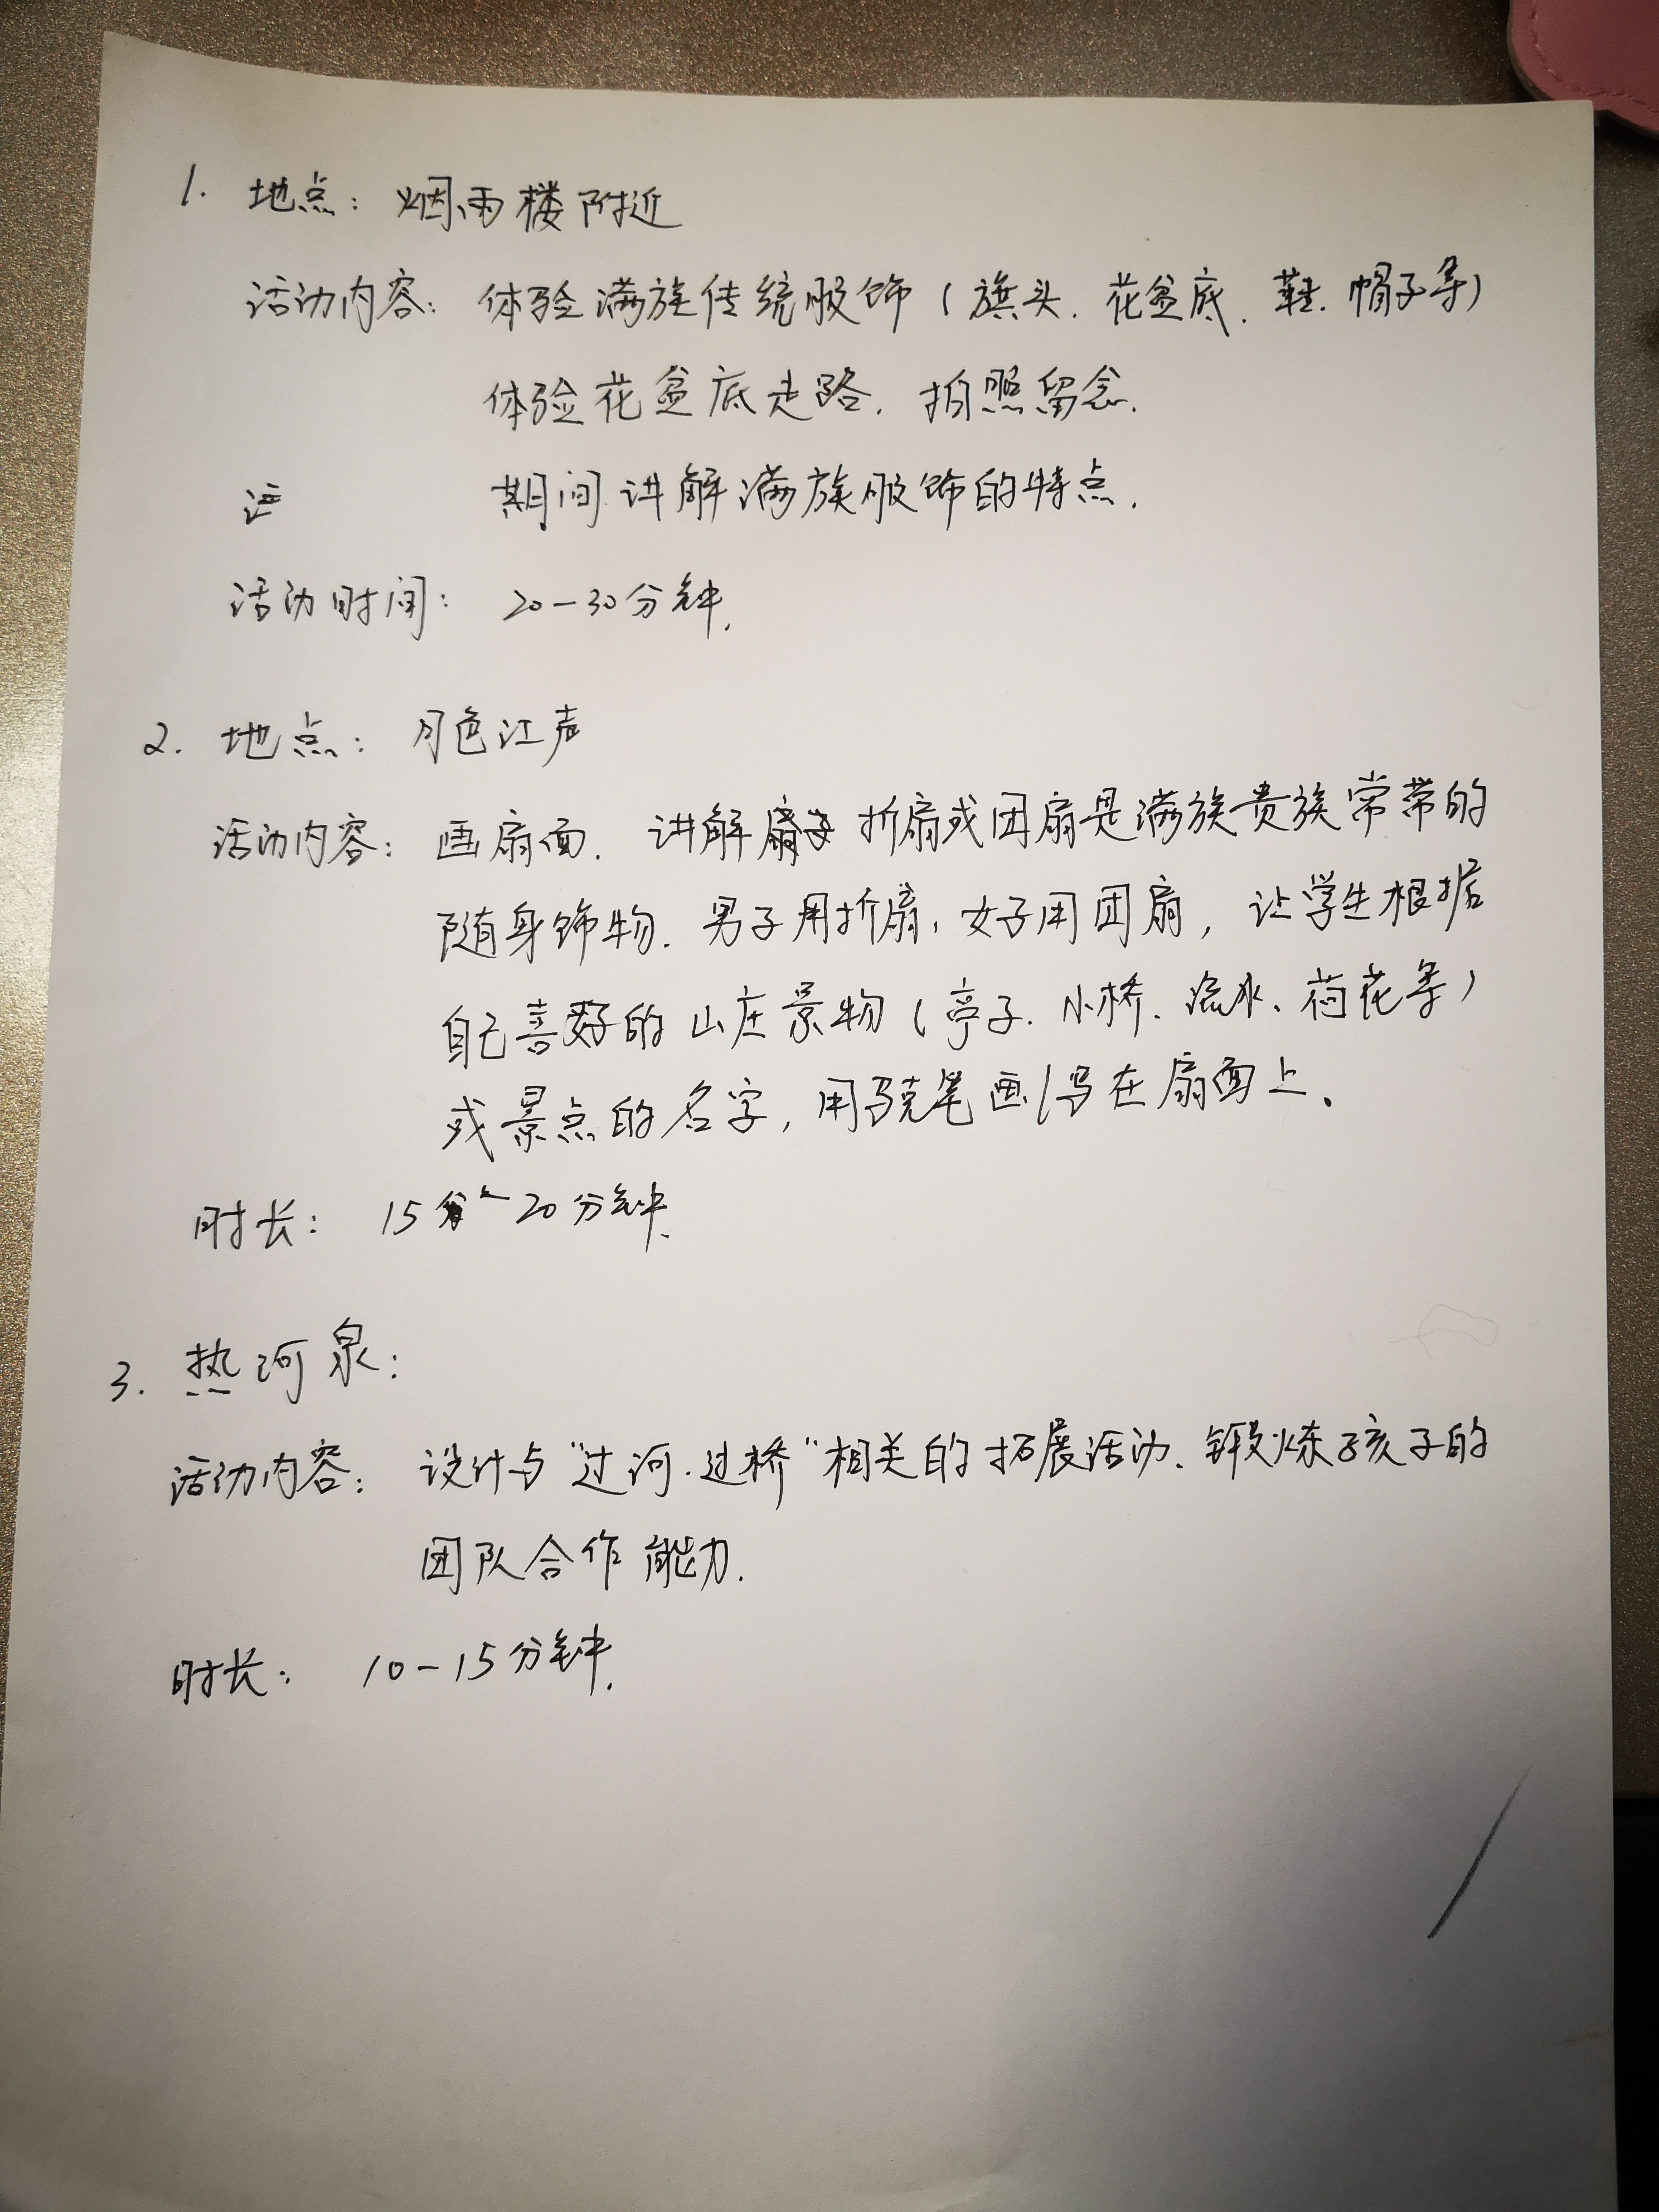 1. 地点：烟雨楼附近
活动内容：体验满族传统服饰（旗头、花盆底、鞋、帽子等）
体验花盆底走路，拍照留念.
期间讲解满族服饰的特点.
活动时间：20—30分钟.
2. 地点：月色江声
活动内容：画扇面. 讲解 折扇或团扇是满族贵族常带的
随身饰物. 男子用折扇，女子用团扇，让学生根据
自己喜好的山庄景物（亭子、小桥、流水、荷花等）
或景点的名字，用马克笔画/写在扇面上。
时长：15 — 20分钟.
3. 热河泉：
活动内容：设计与“过河.过桥”相关的拓展活动、锻炼孩子的
团队合作能力.
时长：10—15分钟.